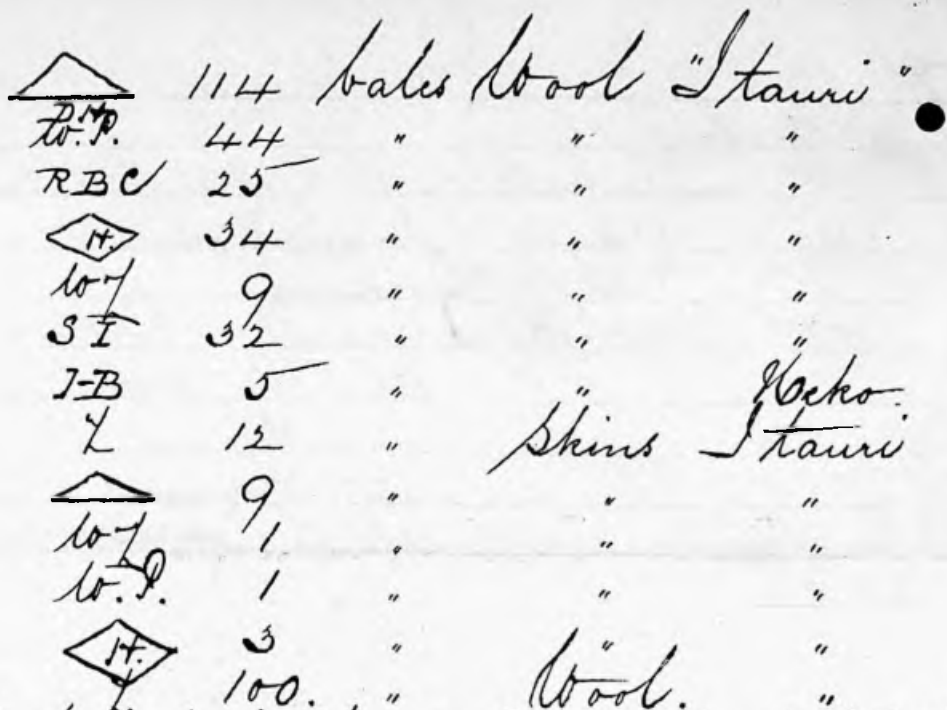 114 bales Wool "Itauri"
W.P. 44 " " "
RBC 25 " " "
H. 34 " " "
9 " " "
SI 32 " " "
J-B 5 " " Heko.
12 " Skins Itauri
9 " " "
1 " " "
W.P. 1 " " "
H. 3 " " "
100. " Wool. "